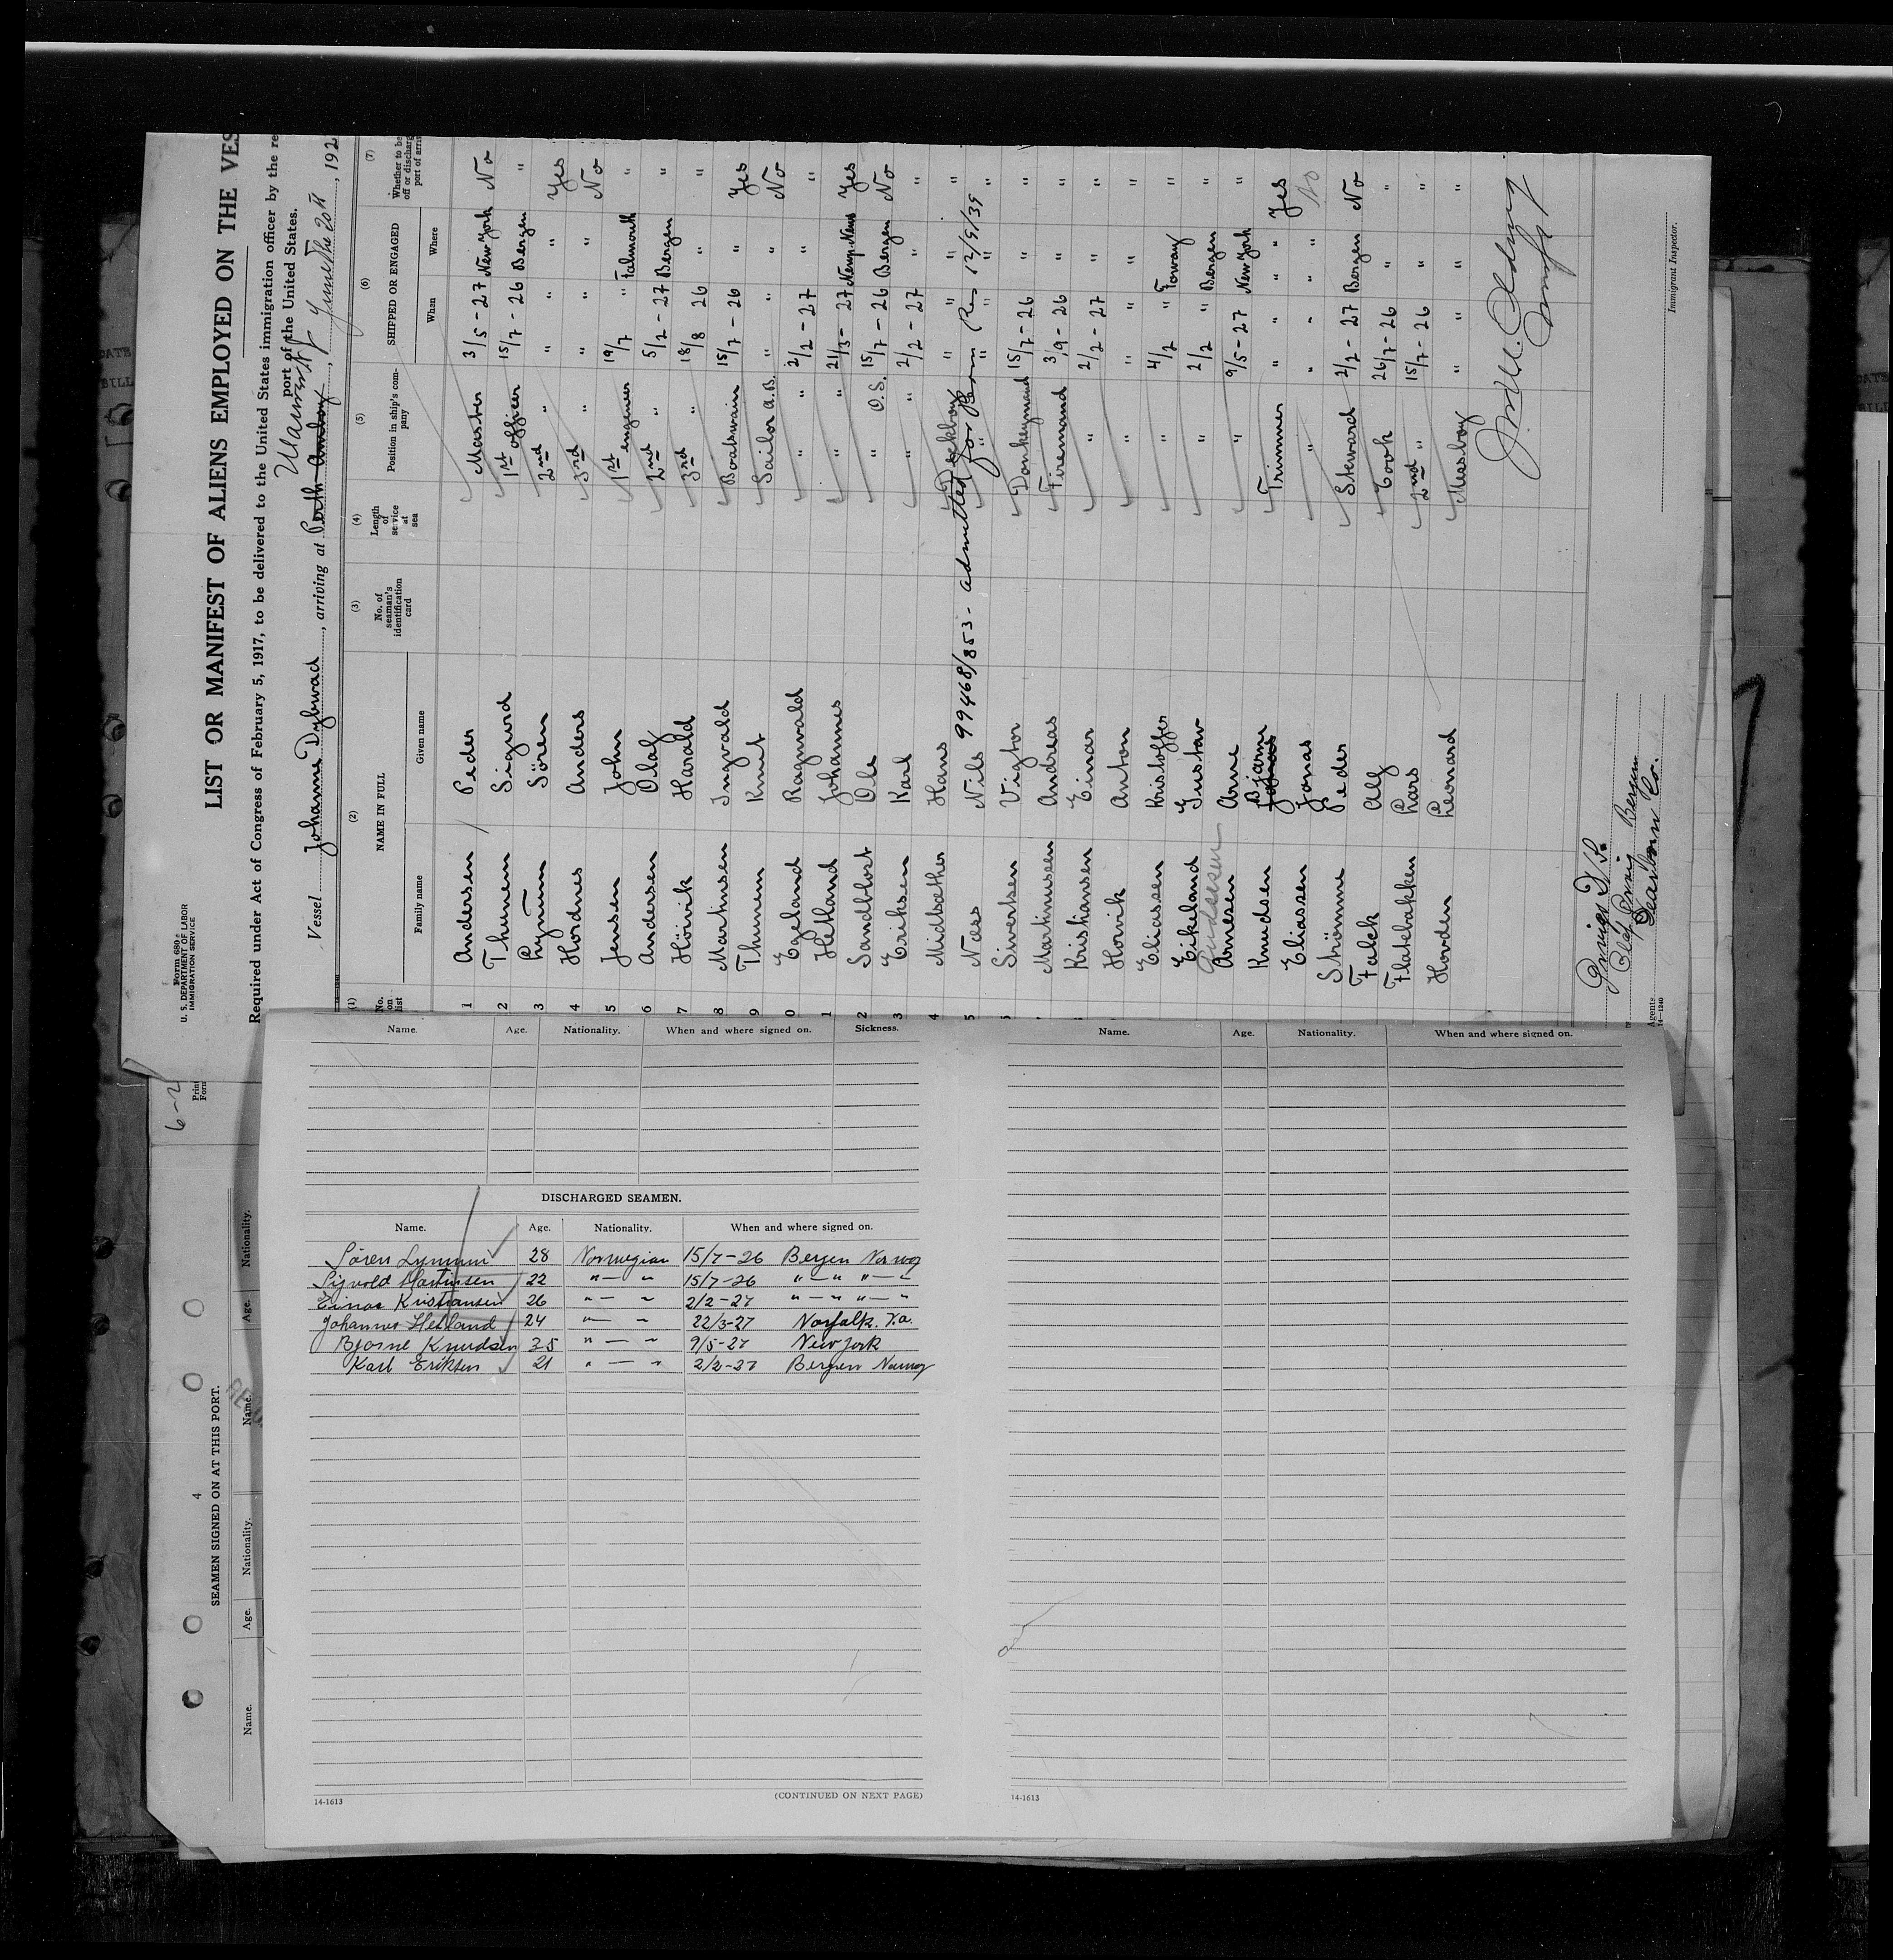 Form 680
U. S. DEPARTMENT OF LABOR
IMMIGRATION SERVICE
LIST OR MANIFEST OF ALIENS EMPLOYED ON THE VES
Required under Act of Congress of February 5, 1917, to be delivered to the United States immigration officer by the re
port of the United States.
Vessel Johanne Dybwad, arriving at Perth Amboy, June The 20th, 192
Warners N J
(1) (2) (3) (4) (5) (6) (7)
No. on list NAME IN FULL No. of seaman's identification card Length of service at sea Position in ship's company SHIPPED OR ENGAGED Whether to be off or discharg port of arri
Family name Given name When Where
1 Andersen Peder Master 3/5 - 27 New York No
2 Thunem Sigurd 1st officer 15/7 - 26 Bergen "
3 Lynum Sören 2nd " " " Yes
4 Hordnes Anders 3rd " " " No
5 Jensen John 1st engineer 19/7 " Falmouth "
6 Andersen Olaf 2nd " 5/2 - 27 Bergen "
7 Hövik Harald 3rd " 18/8 26 " "
8 Martinsen Ingvald Boatswain 15/7 - 26 " Yes
9 Thunem Knut Sailor A.B. " " No
0 Egeland Ragnvald " 2/2 - 27 " "
1 Hetland Johannes " 21/3 - 27 Newp. News Yes
2 Sandblost Ole " O.S. 15/7 - 26 Bergen No
3 Eriksen Karl " " 2/2 - 27 " "
4 Midtsæther Hans Deckboy " " "
99468/853 - admitted for Perm Res 12/5/39
5 Næs Nils " " " "
Sivertsen Vigtor Donkeymand 15/7 - 26 " "
Martinussen Andreas Firemand 3/9 - 26 " "
Kristiansen Einar " 2/2 - 27 " "
Hovik Anton " " " "
Eliassen Kristoffer " 4/2 " Fowey "
Eikeland Gustav " 2/2 " Bergen "
Gudsesen
Arnesen Arne " 9/5 - 27 New York "
Knudsen Jonas Bjarne Trimmer " " Yes
Eliassen Jonas " " " No
Strömme Peder Steward 2/2 - 27 Bergen No
Falck Alf Cook 26/7 - 26 " "
Flatebakken Lars 2nd " 15/7 - 26 " "
Horden Leonard Messboy " " "
Immigrant Inspector.
Agents
14-1240
6-2
Name. Age. Nationality. When and where signed on. Sickness.
Name. Age. Nationality. When and where signed on.
DISCHARGED SEAMEN.
Name. Age. Nationality. When and where signed on.
Sören Lynum 28 Norwegian 15/7-26 Bergen Norway
Sigvold Martinsen 22 " — " 15/7-26 " — " " — "
Einar Kristiansen 26 " — " 2/2-27 " — " " — "
Johannes Hetland 24 " — " 22/3-27 Norfolk. Va.
Bjarne Knudsen 35 " — " 9/5-27 New York
Karl Eriksen 21 " — " 2/2-27 Bergen Norway
14-1613
(CONTINUED ON NEXT PAGE)
14-1613
4
SEAMEN SIGNED ON AT THIS PORT.
Name. Age. Nationality. Name. Age. Nationality.